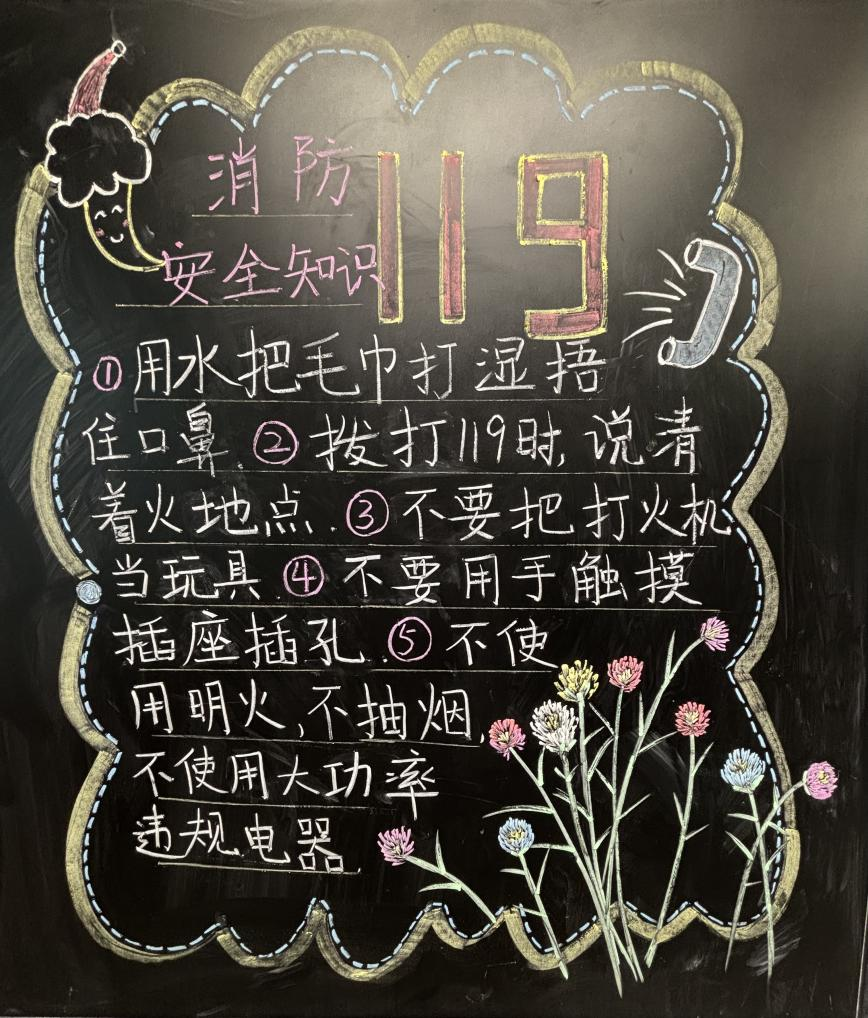 消防
119
安全知识
①用水把毛巾打湿捂
住口鼻.②拨打119时,说清
着火地点.③不要把打火机
当玩具.④不要用手触摸
插座插孔.⑤不使
用明火,不抽烟,
不使用大功率
违规电器.